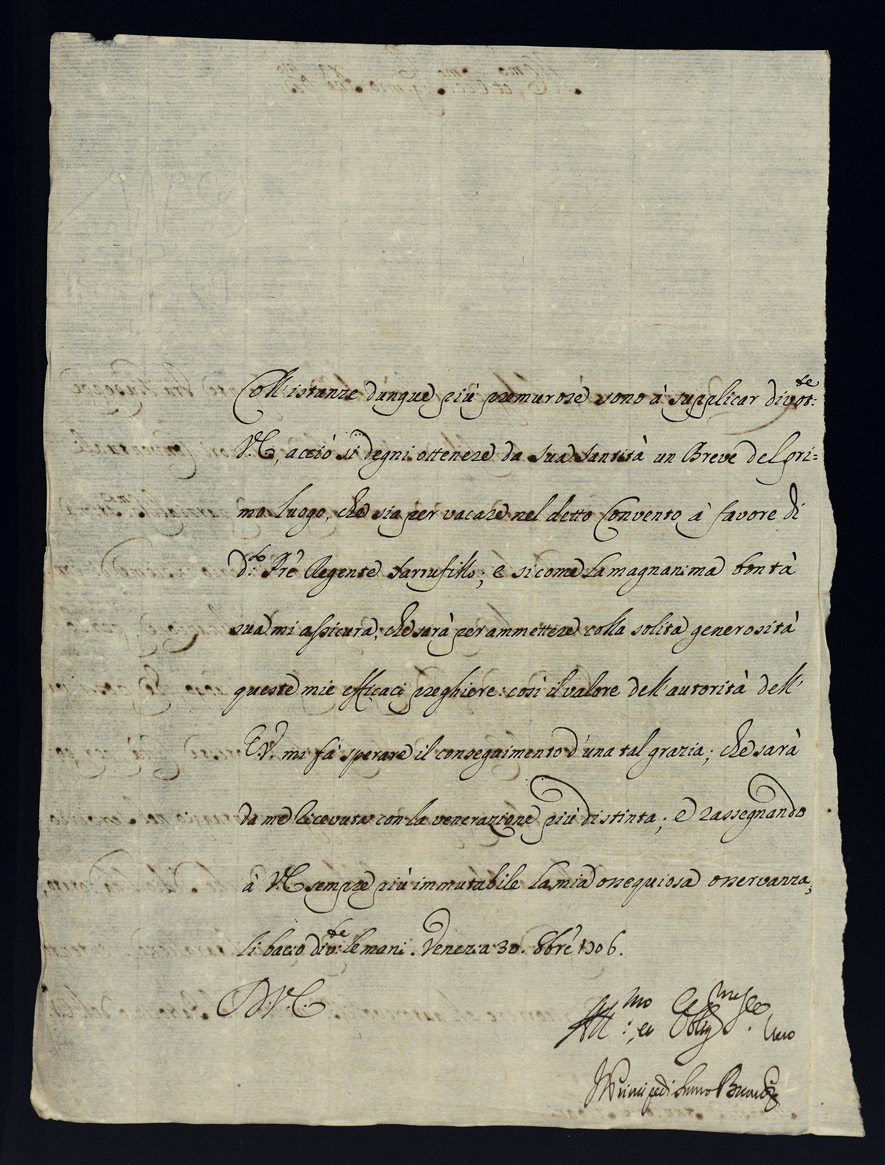 Coll'istanze dunque più premurose sono à supplicar divot:te
V.E, acciò si degni ottenere da sua santità un Breve del pri=
mo luogo, che sia per vacare nel detto Convento à favore di
d:to Prè Regente Sarrufillo; e si come la magnanima bontà
sua mi assicura, che sarà per ammettere colla solita generosità
queste mie efficaci preghiere: così il valore dell'autorità dell'
E.V. mi fà sperare il conseguimento d'una tal grazia; che sarà
da me ricevuta con la venerazione più distinta; e rassegnando
à V.E sempre più immutabile la mia ossequiosa osservanza,
li bacio div:te le mani. Venezia 30. 8bre 1706.
D.V.E.
Aff:mo et Oblig:mo
Il Principe di